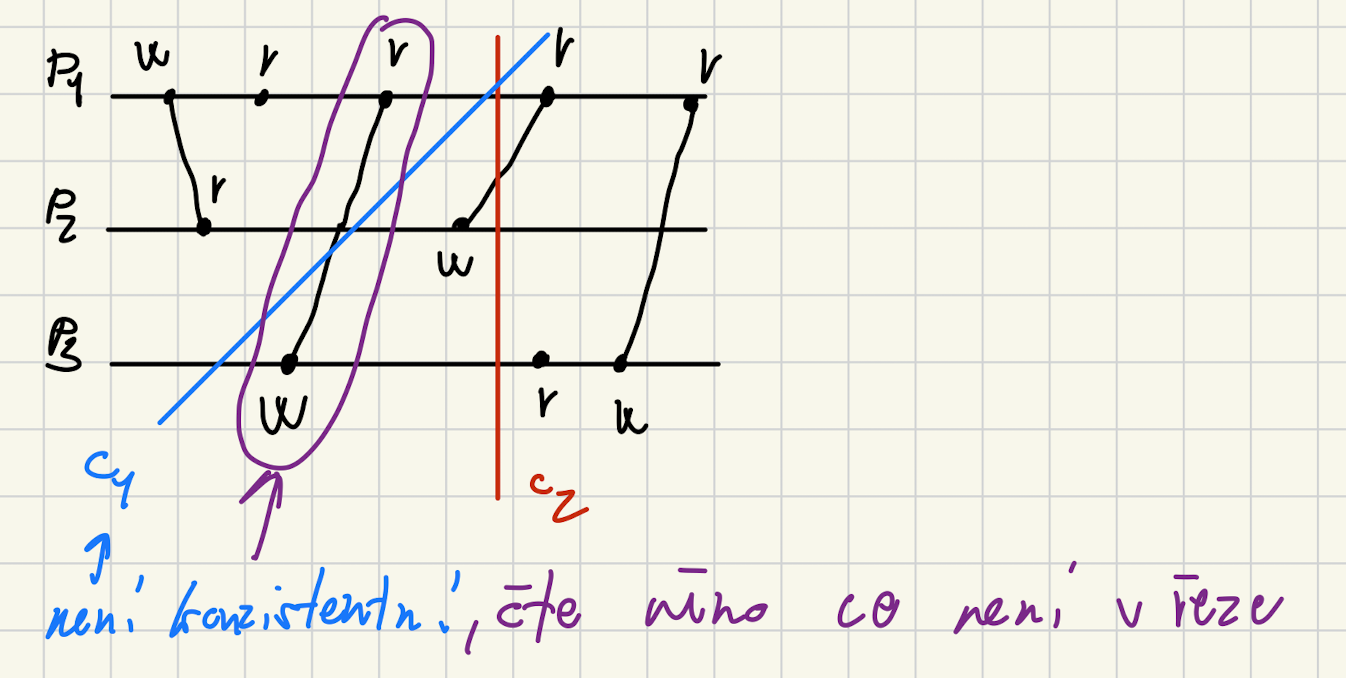 P1 w r r r r
P2 r w
P3 w r w
C1 C2
není konzistentní, čte mimo co není v řeze